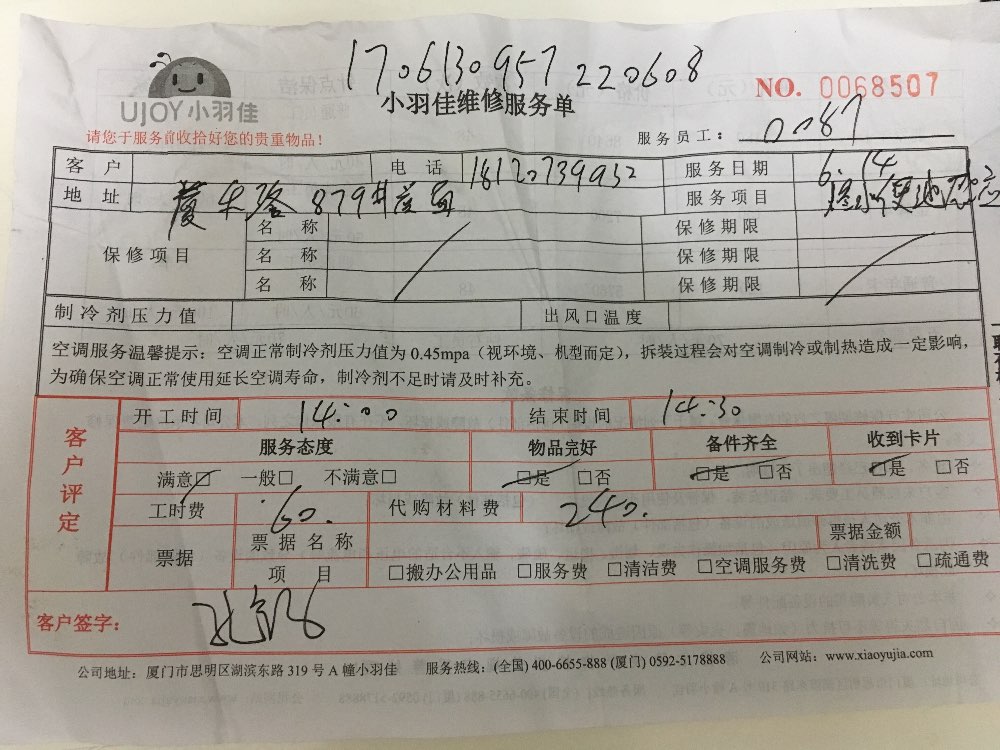 1706130957220608
UJOY小羽佳
小羽佳维修服务单
NO. 0068507
请您于服务前收拾好您的贵重物品！
服务员工：0087
客户 电话 18120739952 服务日期 6.14
地址 879 服务项目
保修项目 名称 保修期限
名称 保修期限
名称 保修期限
制冷剂压力值 出风口温度
空调服务温馨提示：空调正常制冷剂压力值为0.45mpa（视环境、机型而定），拆装过程会对空调制冷或制热造成一定影响，
为确保空调正常使用延长空调寿命，制冷剂不足时请及时补充。
客户评定
开工时间 14:00 结束时间 14:30
服务态度 物品完好 备件齐全 收到卡片
满意□ 一般□ 不满意□ □是 □否 □是 □否 □是 □否
工时费 60. 代购材料费 240.
票据 票据名称 票据金额
项目 □搬办公用品 □服务费 □清洁费 □空调服务费 □清洗费 □疏通费
客户签字：
公司地址：厦门市思明区湖滨东路319号A幢小羽佳 服务热线：(全国) 400-6655-888 (厦门) 0592-5178888 公司网站：www.xiaoyujia.com